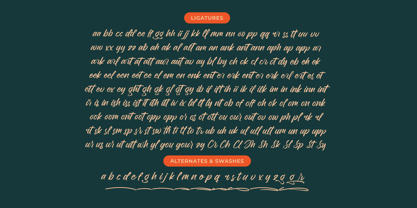 LIGATURES
aa bb cc dd ee ff gg hh ii jj kk ll mm nn oo pp qq rr ss tt uu vv
ww xx yy zz ab ah ak al all am an ank ant ann aph ap app ar
ark arl art at att aur aut av ay bl by ch ck cl cr ct dy eb eh ek
eek eel een eet ee el em en enk ent er erk ent er erl ert es et
ett ev ex ey ght gh gk gl gt gy ib if ift ih ii ik il ilt im in ink inn int
ir is in ish iss ist it ith itt iv ix ld lt ly nt ob of oft oh ok ol om on onk
ook oom ont oot opp opp or os ot ott ou our out ov ow ph pl rk rl
rt sk sl sm sp sr st sw th ti tl to tr ub uh uk ul ull all um un up upp
ur us ur ut utt wh yl you your oy Cr Ch Cl Jh Sh Sk Sl Sp St Sy
ALTERNATES & SWASHES
a b c d e f g h i j k l m n o p q r s t u v x y z g g j y